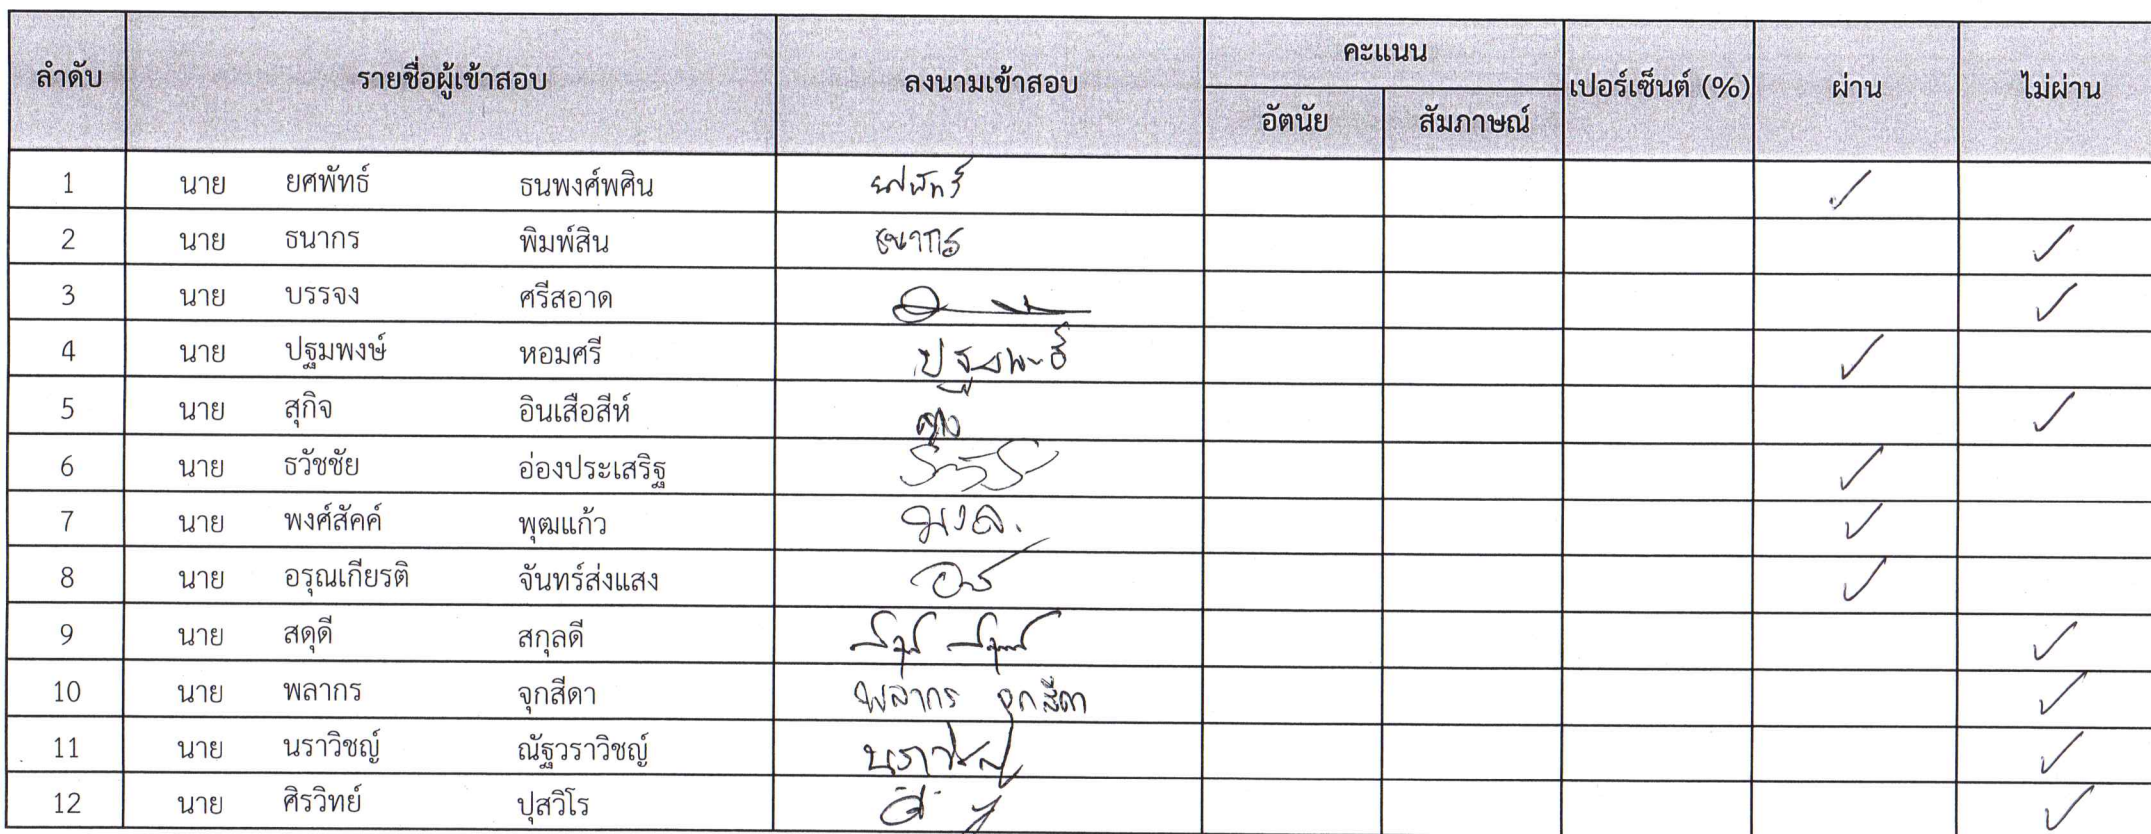 ลำดับ รายชื่อผู้เข้าสอบ ลงนามเข้าสอบ คะแนน เปอร์เซ็นต์ (%) ผ่าน ไม่ผ่าน
อัตนัย สัมภาษณ์
1 นาย ยศพัทธ์ ธนพงศ์พศิน ยศพัทธ์ ✓
2 นาย ธนากร พิมพ์สิน ธนากร ✓
3 นาย บรรจง ศรีสอาด ✓
4 นาย ปฐมพงษ์ หอมศรี ✓
5 นาย สุกิจ อินเสือสีห์ ✓
6 นาย ธวัชชัย อ่องประเสริฐ ✓
7 นาย พงศ์สัคค์ พุฒแก้ว ✓
8 นาย อรุณเกียรติ จันทร์ส่งแสง ✓
9 นาย สดุดี สกุลดี ✓
10 นาย พลากร จุกสีดา พลากร จุกสีดา ✓
11 นาย นราวิชญ์ ณัฐวราวิชญ์ นราวิชญ์ ✓
12 นาย ศิรวิทย์ ปุสวิโร ✓